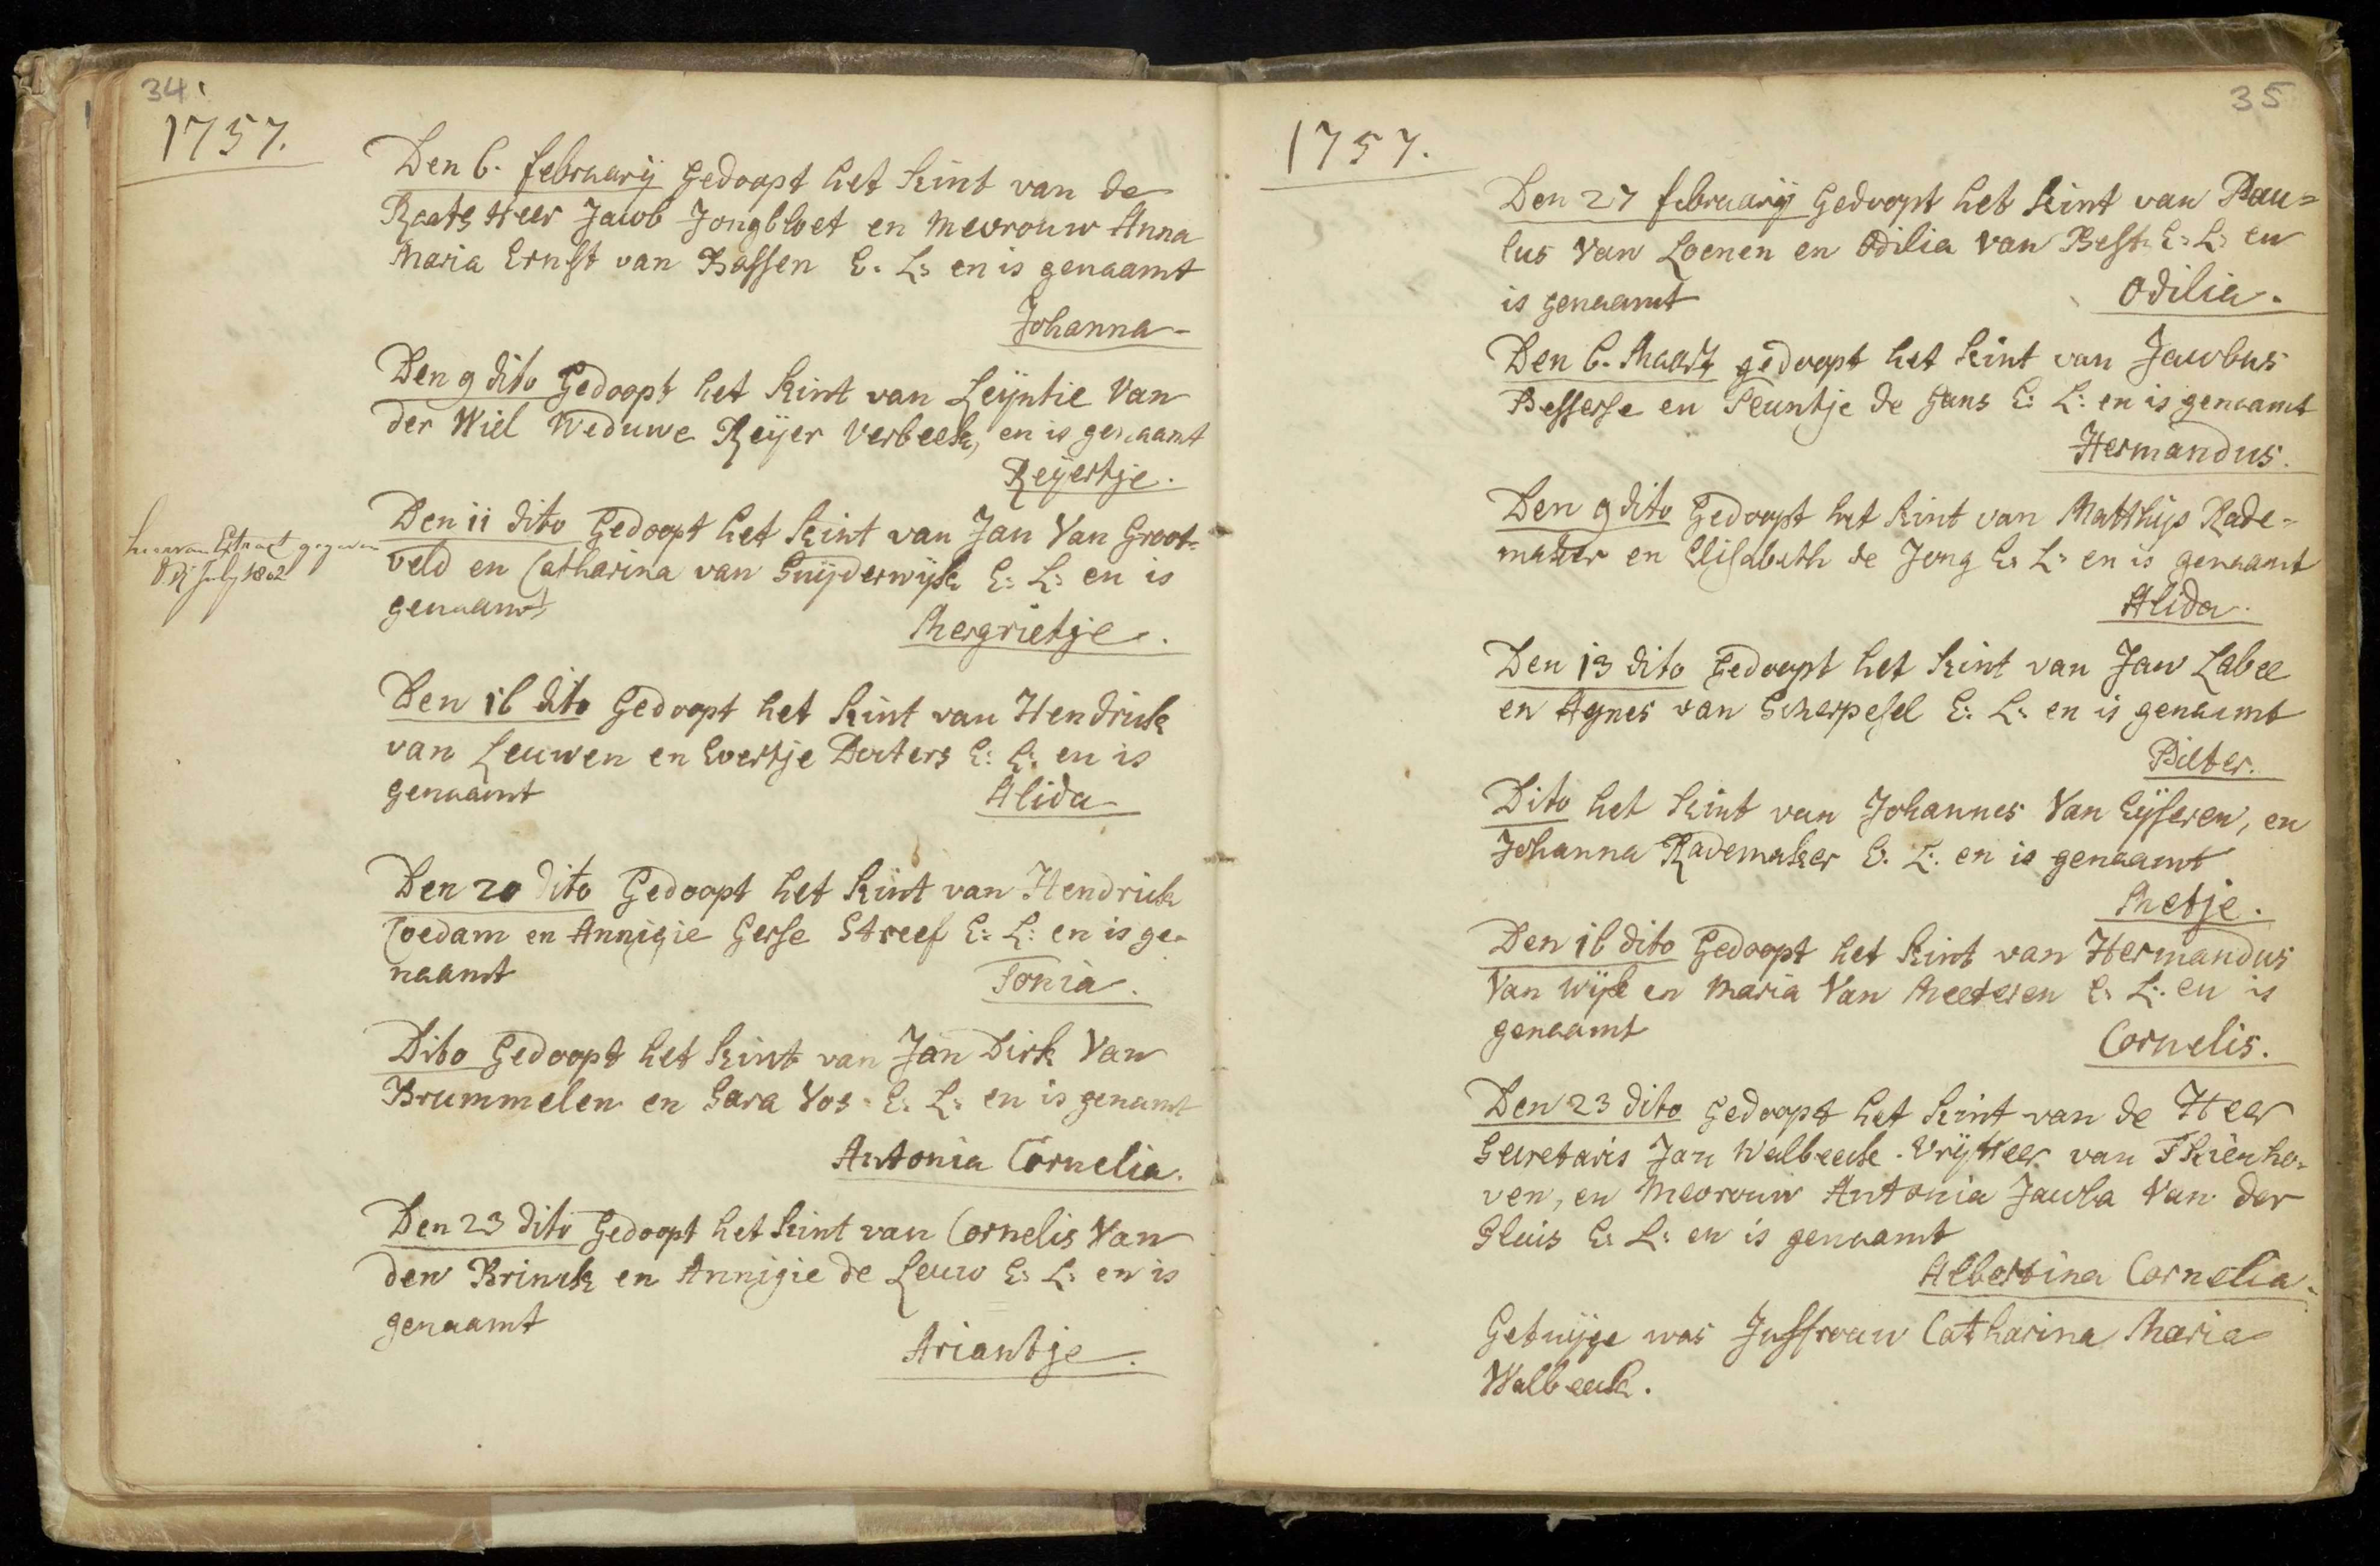 34.
1757.
Den 6. february Gedoopt het kint van de
Raats Heer Jacob Jongbloet en Mevrouw Anna
Maria Ernst van Bassen E. L: en is genaamt
Johanna
Den 9 dito Gedoopt het kint van Leijntie Van
der Wiel Weduwe Reijer Verbeek, en is genaamt
Reijertje.
Den 11 dito Gedoopt het kint van Jan Van Groot-
veld en Catharina van Snijderwijk E: L: en is
genaamt
Mergrietje.
hiervan Extract gegeven
July 1802
Den 16 dito Gedoopt het kint van Hendrick
van Leuwen en Evertje Docters E: L: en is
genaamt Alida
Den 20 dito Gedoopt het kint van Hendrick
Coedam en Annigie Gerse Streef E: L: en is ge-
naamt Tonia.
Dito Gedoopt het kint van Jan Dirk Van
Brummelen en Sara Vos E: L: en is genaamt
Antonia Cornelia.
Den 23 dito Gedoopt het kint van Cornelis Van
den Brinck en Annigie de Leuw E: L: en is
genaamt
Ariantje.
35
1757.
Den 27 february Gedoopt het kint van Pau=
lus Van Loenen en Odilia van Best E: L: en
is genaamt Odilia.
Den 6. Maart gedoopt het kint van Jacobus
Besserse en Teuntje de Gans E: L: en is genaamt
Hermandus.
Den 9 dito Gedoopt het kint van Matthijs Rade-
maker en Elisabeth de Jong E: L: en is genaamt
Alida.
Den 13 dito Gedoopt het kint van Jan Labee
en Agnes van Scherpesel E: L: en is genaamt
Pieter.
Dito het kint van Johannes Van Eijseren, en
Johanna Rademaker E. L: en is genaamt
Metje.
Den 16 dito Gedoopt het kint van Hermandus
Van Wijk en Maria Van Meeteren E: L: en is
genaamt
Cornelis.
Den 23 dito Gedoopt het kint van de Heer
Secretaris Jan Walbeeck. Vrij Heer van Thienho-
ven, en Mevrouw Antonia Jacoba Van der
Sluis E: L: en is genaamt
Albertina Cornelia.
Getuijge was Juffrouw Catharina Maria
Walbeeck.